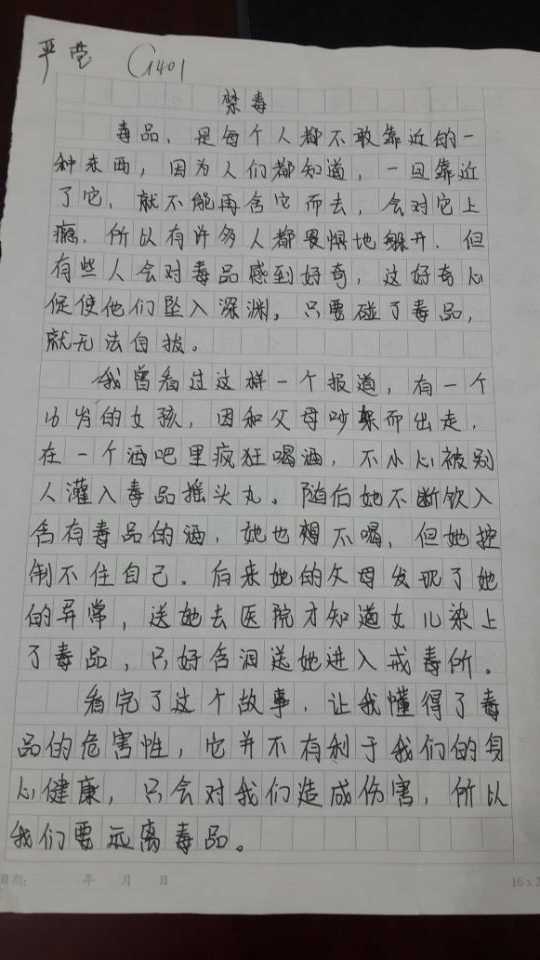 严莹 G401
禁毒
毒品，是每个人都不敢靠近的一
种东西，因为人们都知道，一旦靠近
了它，就不能再舍它而去，会对它上
瘾，所以有许多人都畏惧地躲开，但
有些人会对毒品感到好奇，这好奇心
促使他们坠入深渊，只要碰了毒品，
就无法自拔。
我曾看过这样一个报道，有一个
16岁的女孩，因和父母吵架而出走，
在一个酒吧里疯狂喝酒，不小心被别
人灌入毒品摇头丸。随后她不断饮入
含有毒品的酒，她也想不喝，但她控
制不住自己。后来她的父母发现了她
的异常，送她去医院才知道女儿染上
了毒品，只好含泪送她进入戒毒所。
看完了这个故事，让我懂得了毒
品的危害性，它并不有利于我们的身
心健康，只会对我们造成伤害，所以
我们要远离毒品。
日期： 年 月 日